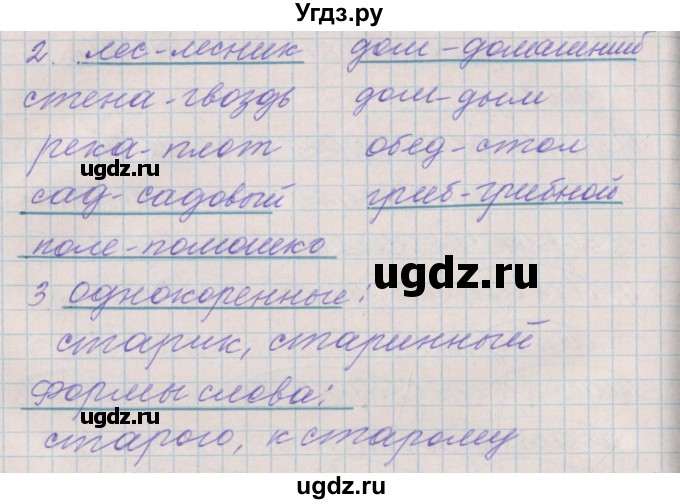 Угдз.ру
2. лес-лесник дом-домашний
стена-гвоздь дом-дым
река-плот обед-стол
ugdz.ru
сад-садовый гриб-грибной
поле-полюшко
ugdz.ru
3 однокоренные:
старик, старинный
формы слова:
ugdz.ru
старого, к старому
ugdz.ru